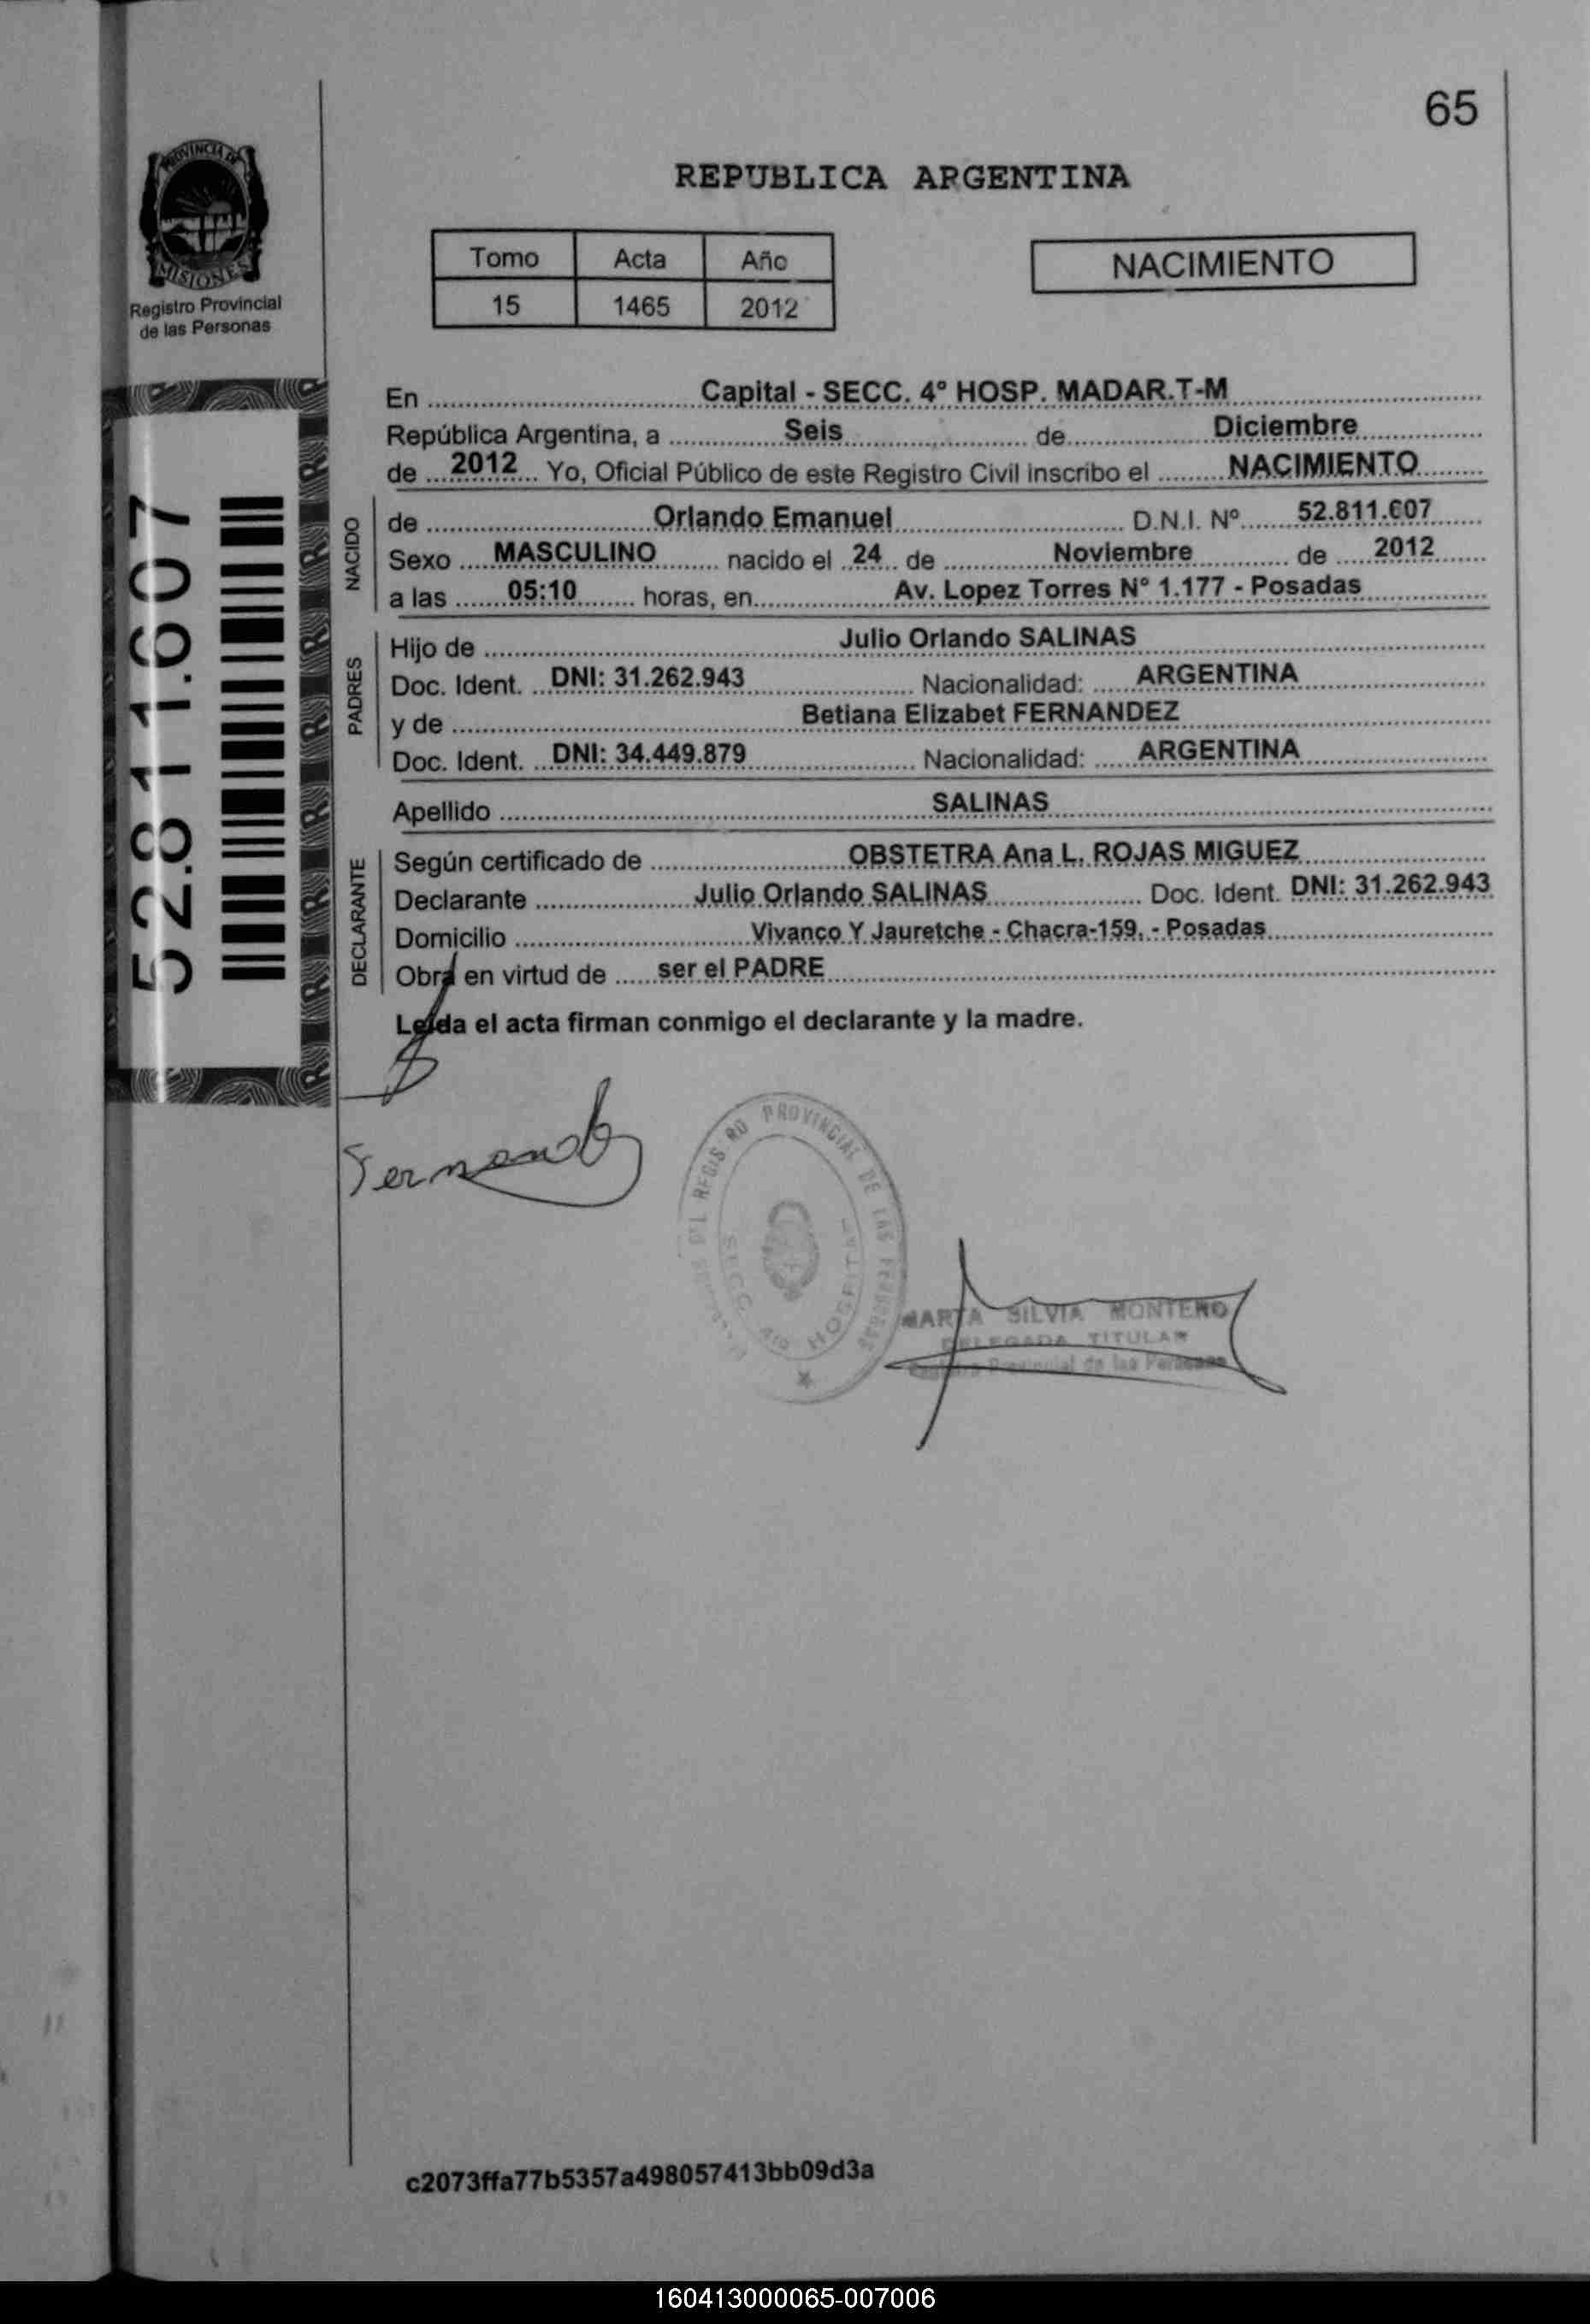 65
PROVINCIA DE
MISIONES
Registro Provincial
de las Personas
REPUBLICA ARGENTINA
Tomo Acta Año
15 1465 2012
NACIMIENTO
52.811.607
En Capital - SECC. 4º HOSP. MADAR.T-M
República Argentina, a Seis de Diciembre
de 2012 Yo, Oficial Público de este Registro Civil inscribo el NACIMIENTO
NACIDO
de Orlando Emanuel D.N.I. Nº 52.811.607
Sexo MASCULINO nacido el 24 de Noviembre de 2012
a las 05:10 horas, en Av. Lopez Torres Nº 1.177 - Posadas
PADRES
Hijo de Julio Orlando SALINAS
Doc. Ident. DNI: 31.262.943 Nacionalidad: ARGENTINA
y de Betiana Elizabet FERNANDEZ
Doc. Ident. DNI: 34.449.879 Nacionalidad: ARGENTINA
Apellido SALINAS
DECLARANTE
Según certificado de OBSTETRA Ana L. ROJAS MIGUEZ
Declarante Julio Orlando SALINAS Doc. Ident. DNI: 31.262.943
Domicilio Vivanco Y Jauretche - Chacra-159, - Posadas
Obra en virtud de ser el PADRE
Leída el acta firman conmigo el declarante y la madre.
PROVINCIAL DE LAS PERSONAS
SECC. 4ta HOSPITAL
MARTA SILVIA MONTERO
DELEGADA TITULAR
Registro Provincial de las Personas
c2073ffa77b5357a498057413bb09d3a
160413000065-007006